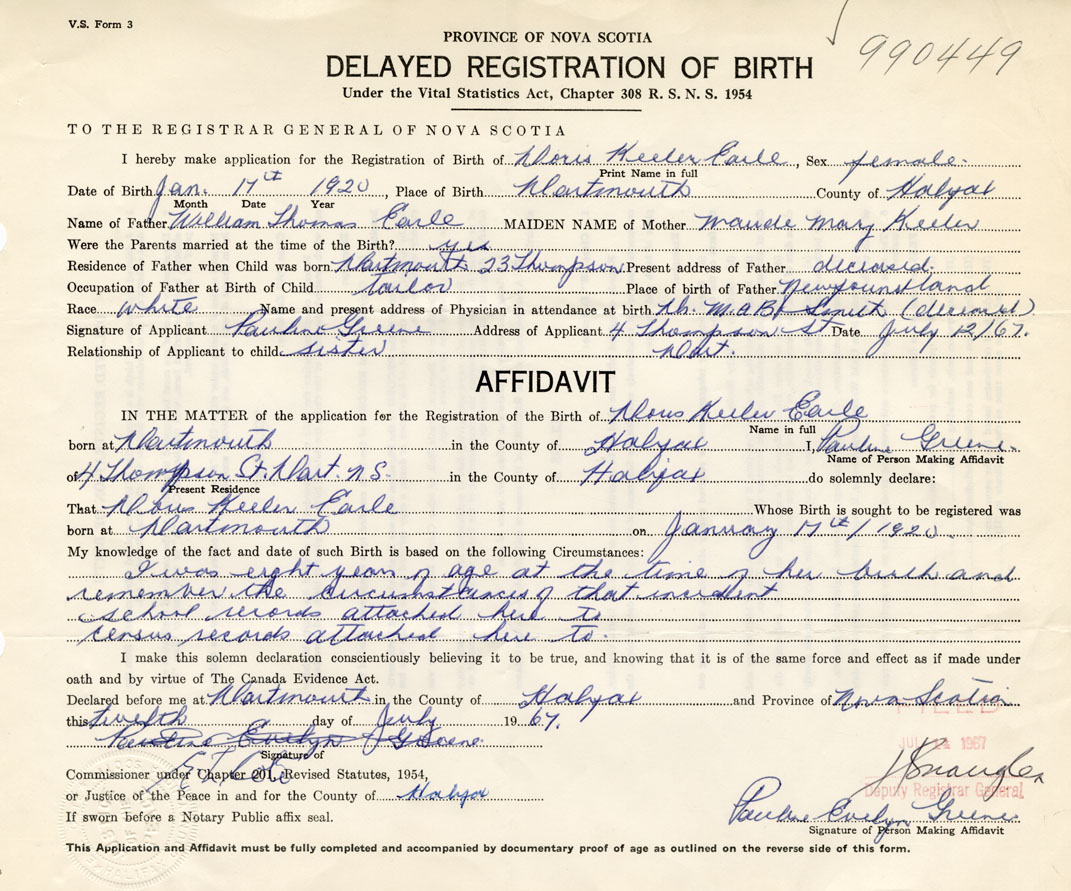 V.S. Form 3
990449
PROVINCE OF NOVA SCOTIA
DELAYED REGISTRATION OF BIRTH
Under the Vital Statistics Act, Chapter 308 R. S. N. S. 1954
TO THE REGISTRAR GENERAL OF NOVA SCOTIA
I hereby make application for the Registration of Birth of Doris Keeler Earle, Sex female.
Print Name in full
Date of Birth Jan. 17th 1920, Place of Birth Dartmouth County of Halifax
Month Date Year
Name of Father William Thomas Earle MAIDEN NAME of Mother Maude Mary Keeler
Were the Parents married at the time of the Birth? yes
Residence of Father when Child was born Dartmouth 23 Thompson Present address of Father deceased.
Occupation of Father at Birth of Child tailor Place of birth of Father Newfoundland
Race white Name and present address of Physician in attendance at birth Dr. M.A.B. Smith (deceased)
Signature of Applicant Pauline Greene Address of Applicant 4 Thompson St Date July 12/67.
Relationship of Applicant to child sister Dart.
AFFIDAVIT
IN THE MATTER of the application fer the Registration of the Birth of Doris Keeler Earle
Name in full
born at Dartmouth in the County of Halifax I, Pauline Greene.
Name of Person Making Affidavit
of 4 Thompson St. Dart. N.S. in the County of Halifax do solemnly declare:
Present Residence
That Doris Keeler Earle Whose Birth is sought to be registered was
born at Dartmouth on January 17th/1920.
My knowledge of the fact and date of such Birth is based on the following Circumstances:
I was eight years of age at the time of her birth and
remember the circumstances of that incident
school records attached here to
census records attached here to.
I make this solemn declaration conscientiously believing it to be true, and knowing that it is of the same force and effect as if made under
oath and by virtue of The Canada Evidence Act.
Declared before me at Dartmouth in the County of Halifax and Province of Nova Scotia
FILED
this twelfth day of July 1967.
Pauline Evelyn Greene
JUL 1967
Signature of
Commissioner under Chapter 201, Revised Statutes, 1954,
Deputy Registrar General
or Justice of the Peace in and for the County of Halifax
Pauline Evelyn Greene
If sworn before a Notary Public affix seal.
Signature of Person Making Affidavit
This Application and Affidavit must be fully completed and accompanied by documentary proof of age as outlined on the reverse side of this form.